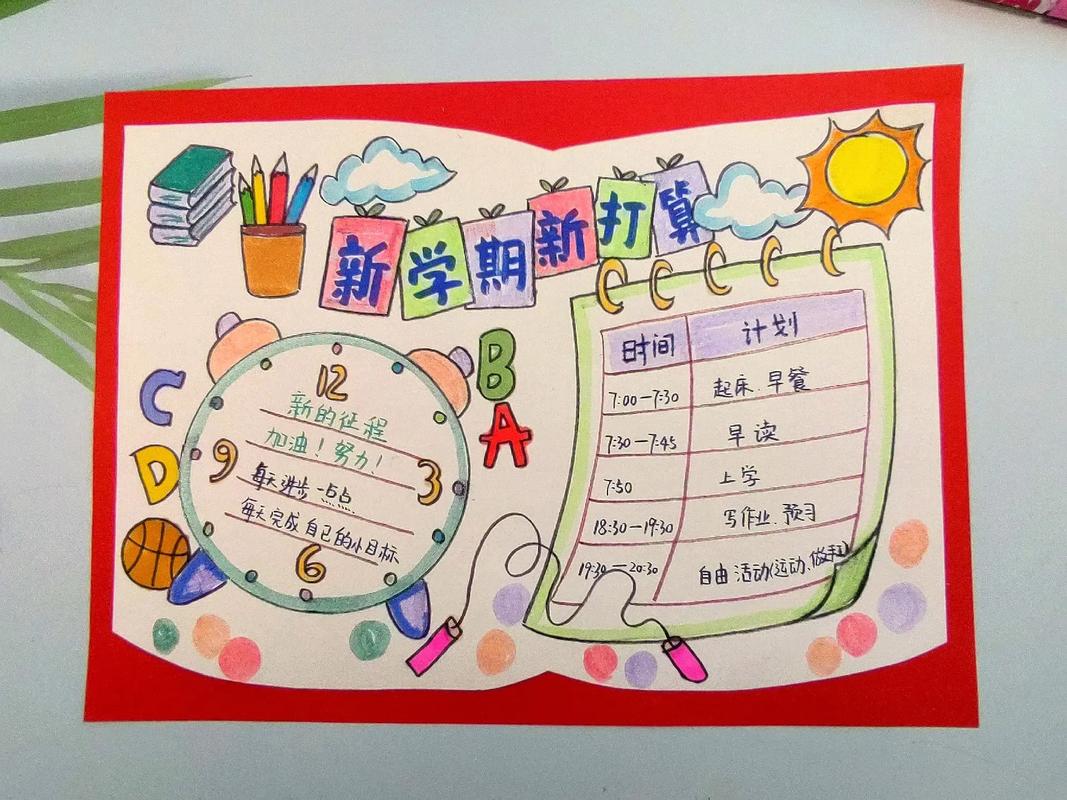 新学期新打算
12
新的征程
加油！努力！
9
3
每天进步一点点
每天完成自己的小目标
6
C
D
B
A
时间 计划
7:00—7:30 起床、早餐
7:30—7:45 早读
7:50 上学
18:30—19:30 写作业、预习
19:30—20:30 自由活动(运动、做手工)